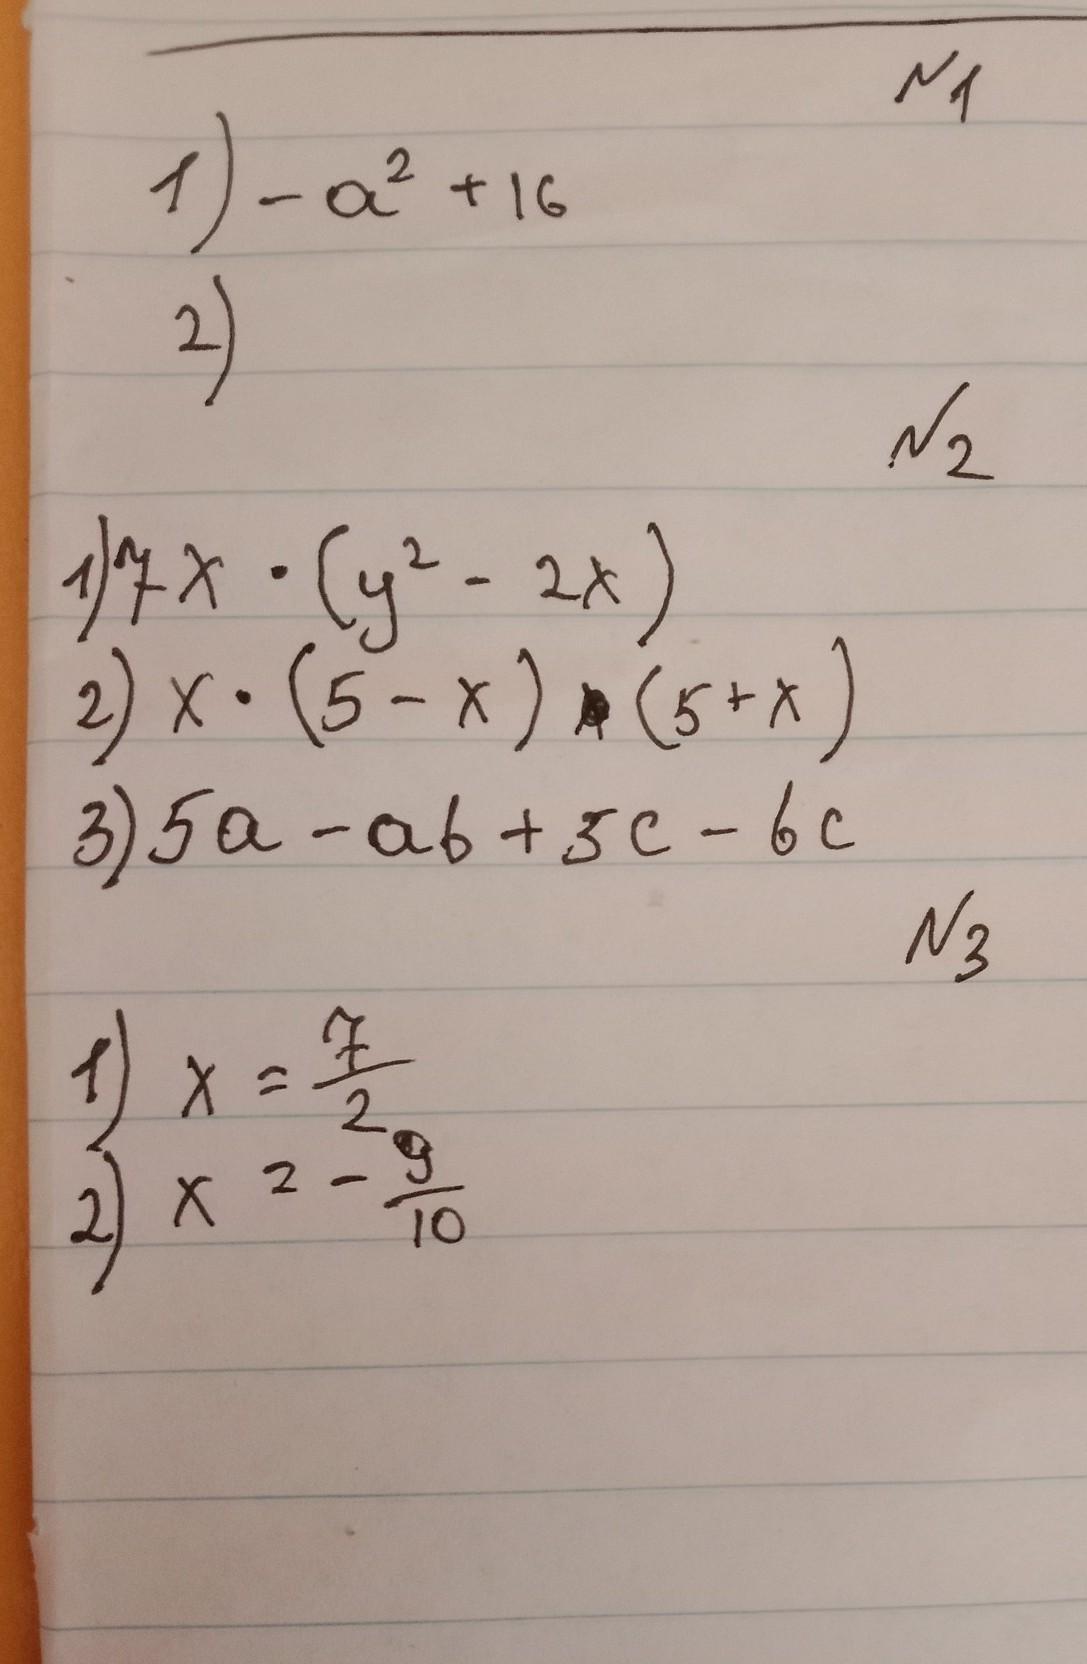 N1
1) -a² + 16
2)
N2
1) 7x · (y² - 2x)
2) x · (5 - x) · (5 + x)
3) 5a - ab + 5c - bc
N3
1) x = 7/2
2) x = - 9/10